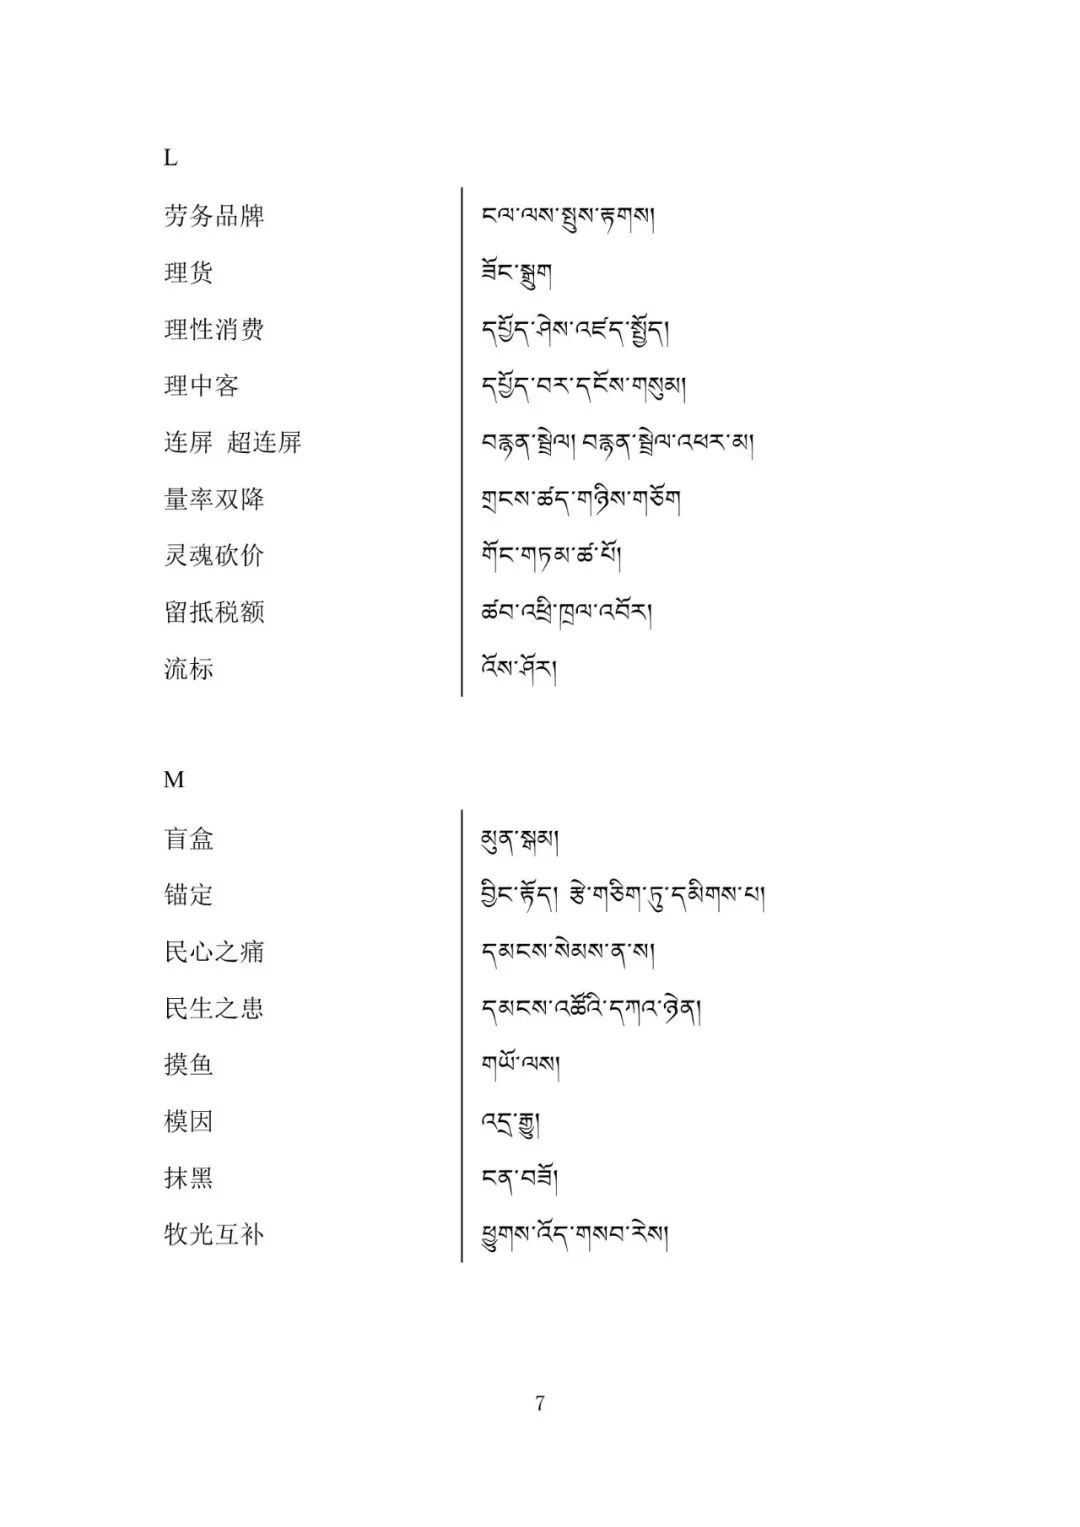 L
劳务品牌 ངལ་ལས་སྤུས་རྟགས།
理货 ཟོང་སྒྲུག
理性消费 དཔྱོད་ཤེས་འཛད་སྤྱོད།
理中客 དཔྱོད་བར་དངོས་གསུམ།
连屏 超连屏 བརྙན་སྦྲེལ། བརྙན་སྦྲེལ་འཕར་མ།
量率双降 གྲངས་ཚད་གཉིས་གཅོག
灵魂砍价 གོང་གཏམ་ཚ་པོ།
留抵税额 ཚབ་འཕྲི་ཁྲལ་འབོར།
流标 འོས་ཤོར།
M
盲盒 མུན་སྒམ།
锚定 བྱིང་རྟོད། རྩེ་གཅིག་ཏུ་དམིགས་པ།
民心之痛 དམངས་སེམས་ན་ས།
民生之患 དམངས་འཚོའི་དཀའ་ཉེན།
摸鱼 གཡོ་ལས།
模因 འདྲ་རྒྱུ།
抹黑 ངན་བཟོ།
牧光互补 ཕྱུགས་འོད་གསབ་རེས།
7